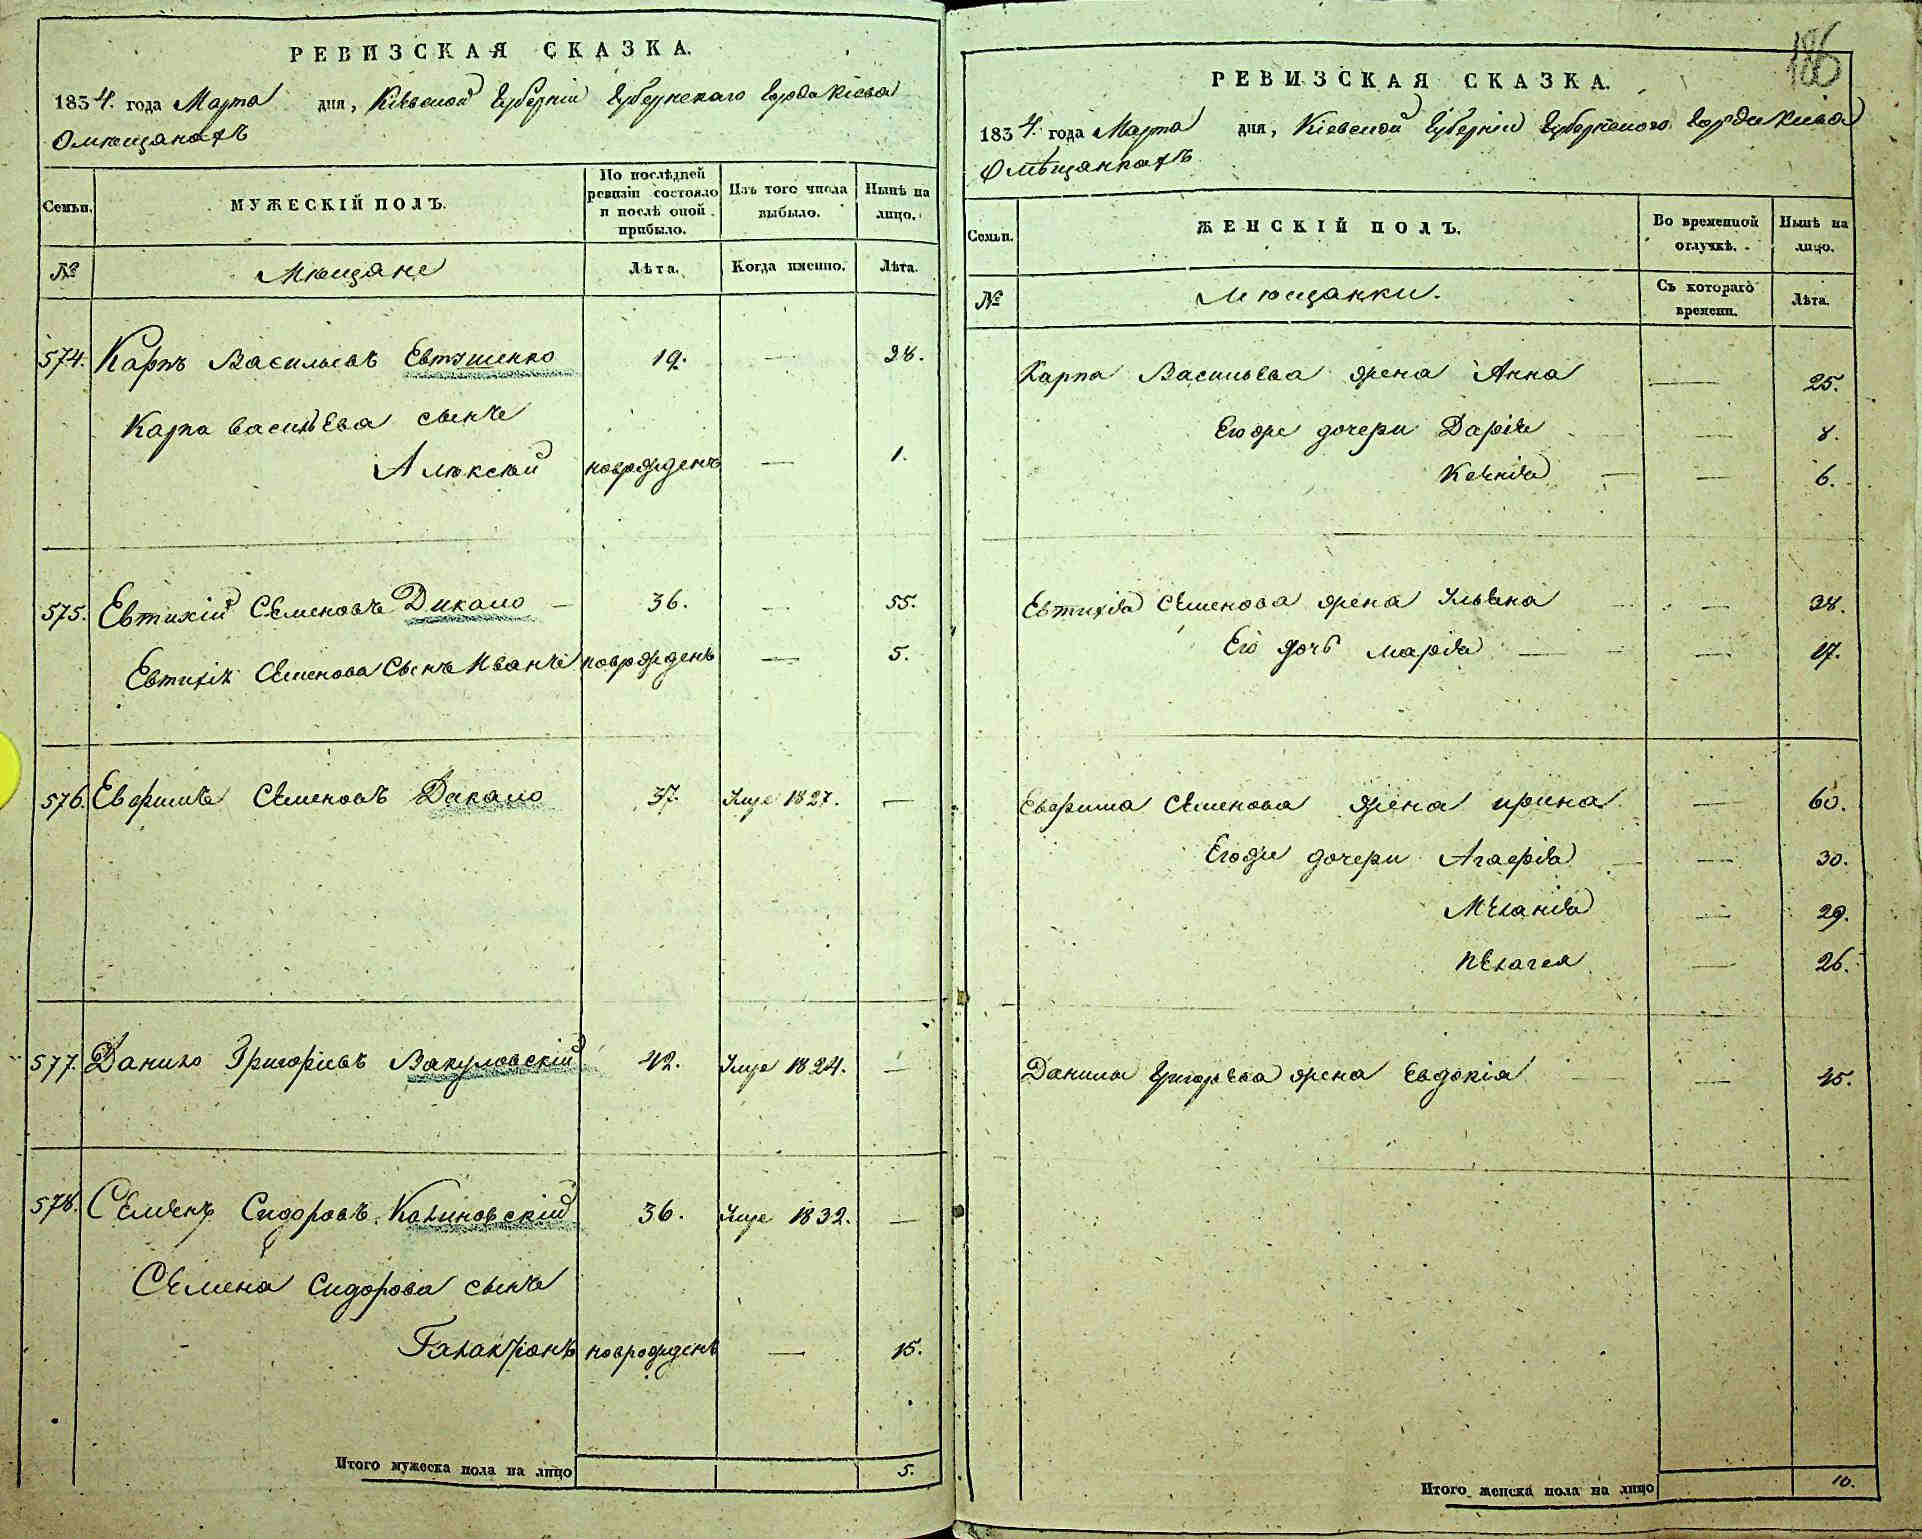 РЕВИЗСКАЯ СКАЗКА.
1834. года Марта дня, Кіевской Губерніи Губернскаго Города Кіева
О мѣщанахъ
Семьи.
МУЖЕСКІЙ ПОЛЪ.
По послѣдней ревизіи состояло и послѣ оной прибыло.
Изъ того числа выбыло.
Нынѣ на лицо.
№
Мѣщане
Лѣта.
Когда именно.
Лѣта.
574. Карпъ Васильевъ Евтушенко 19. — 28.
Карпа Васильева сынъ
Алексѣй новорожденъ — 1.
575. Евтихій Семеновъ Дикало — 36. — 55.
Евтихія Семенова Сынъ Иванъ новорожденъ — 5.
576. Евфимъ Семеновъ Дикало 37. Умре 1827. —
577. Данило Григорьевъ Вакуловскій 42. Умре 1824. —
578. Семенъ Сидоровъ Калиновскій 36. Умре 1832. —
Семена Сидорова сынъ
Галактіонъ новорожденъ — 15.
Итого мужеска пола на лицо 5.
186
РЕВИЗСКАЯ СКАЗКА.
1834. года Марта дня, Кіевской Губерніи Губернскаго Города Кіева
О мѣщанкахъ
Семьи.
ЖЕНСКІЙ ПОЛЪ.
Во временной отлучкѣ.
Нынѣ на лицо.
№
Мѣщанки.
Съ котораго времени.
Лѣта.
Карпа Васильева жена Анна — 25.
Его же дочери Дарія — 8.
Ксенія — — 6.
Евтихія Семенова жена Ульяна — — 38.
Его дочь Марія — — 17.
Евфима Семенова жена Ирина — 60.
Его же дочери Агафія — — 30.
Меланія — 29.
Пелагея — 26.
Данила Григорьева жена Евдокія — — 45.
Итого женска пола на лицо 10.